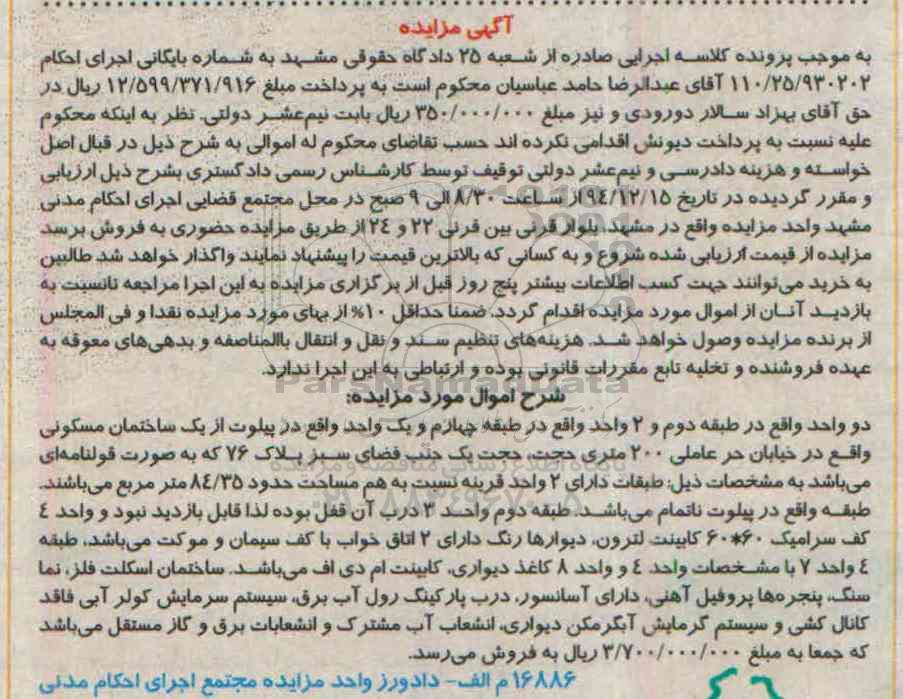 آگهی مزایده
به موجب پرونده کلاسه اجرایی صادره از شعبه ۲۵ دادگاه حقوقی مشهد به شماره بایگانی اجرای احکام
۱۱۰/۲۵/۹۳۰۲۰۲ آقای عبدالرضا حامد عباسیان محکوم است به پرداخت مبلغ ۱۲/۵۹۹/۳۷۱/۹۱۶ ریال در
حق آقای بهزاد سالار دورودی و نیز مبلغ ۳۵۰/۰۰۰/۰۰۰ ریال بابت نیم‌عشر دولتی. نظر به اینکه محکوم
علیه نسبت به پرداخت دیونش اقدامی نکرده اند حسب تقاضای محکوم له اموالی به شرح ذیل در قبال اصل
خواسته و هزینه دادرسی و نیم‌عشر دولتی توقیف توسط کارشناس رسمی دادگستری بشرح ذیل ارزیابی
و مقرر گردیده در تاریخ ۹۴/۱۲/۱۵ از ساعت ۸/۳۰ الی ۹ صبح در محل مجتمع قضایی اجرای احکام مدنی
مشهد واحد مزایده واقع در مشهد، بلوار قرنی بین قرنی ۲۲ و ۲۴ از طریق مزایده حضوری به فروش برسد
مزایده از قیمت ارزیابی شده شروع و به کسانی که بالاترین قیمت را پیشنهاد نمایند واگذار خواهد شد طالبین
به خرید می‌توانند جهت کسب اطلاعات بیشتر پنج روز قبل از برگزاری مزایده به این اجرا مراجعه تانسبت به
بازدید آنان از اموال مورد مزایده اقدام گردد. ضمنا حداقل ۱۰% از بهای مورد مزایده نقدا و فی المجلس
از برنده مزایده وصول خواهد شد. هزینه‌های تنظیم سند و نقل و انتقال باالمناصفه و بدهی‌های معوقه به
عهده فروشنده و تخلیه تابع مقررات قانونی بوده و ارتباطی به این اجرا ندارد.
ParsNamadData
شرح اموال مورد مزایده:
دو واحد واقع در طبقه دوم و ۲ واحد واقع در طبقه چهارم و یک واحد واقع در پیلوت از یک ساختمان مسکونی
واقع در خیابان حر عاملی ۲۰۰ متری حجت، حجت یک جنب فضای سبز پلاک ۷۶ که به صورت قولنامه‌ای
پایگاه اطلاع رسانی مناقصه و مزایده
می‌باشد به مشخصات ذیل: طبقات دارای ۲ واحد قرینه نسبت به هم مساحت حدود ۸۴/۳۵ متر مربع می‌باشند.
طبقه واقع در پیلوت ناتمام می‌باشد. طبقه دوم واحد ۳ درب آن قفل بوده لذا قابل بازدید نبود و واحد ٤
کف سرامیک ۶۰*۶۰ کابینت لترون، دیوارها رنگ دارای ۲ اتاق خواب با کف سیمان و موکت می‌باشد، طبقه
٤ واحد ۷ با مشخصات واحد ٤ و واحد ۸ کاغذ دیواری، کابینت ام دی اف می‌باشد. ساختمان اسکلت فلز، نما
سنگ، پنجره‌ها پروفیل آهنی، دارای آسانسور، درب پارکینگ رول آب برق، سیستم سرمایش کولر آبی فاقد
کانال کشی و سیستم گرمایش آبگرمکن دیواری، انشعاب آب مشترک و انشعابات برق و گاز مستقل می‌باشد
که جمعا به مبلغ ۳/۷۰۰/۰۰۰/۰۰۰ ریال به فروش می‌رسد.
۱۶۸۸۶ م الف- دادورز واحد مزایده مجتمع اجرای احکام مدنی